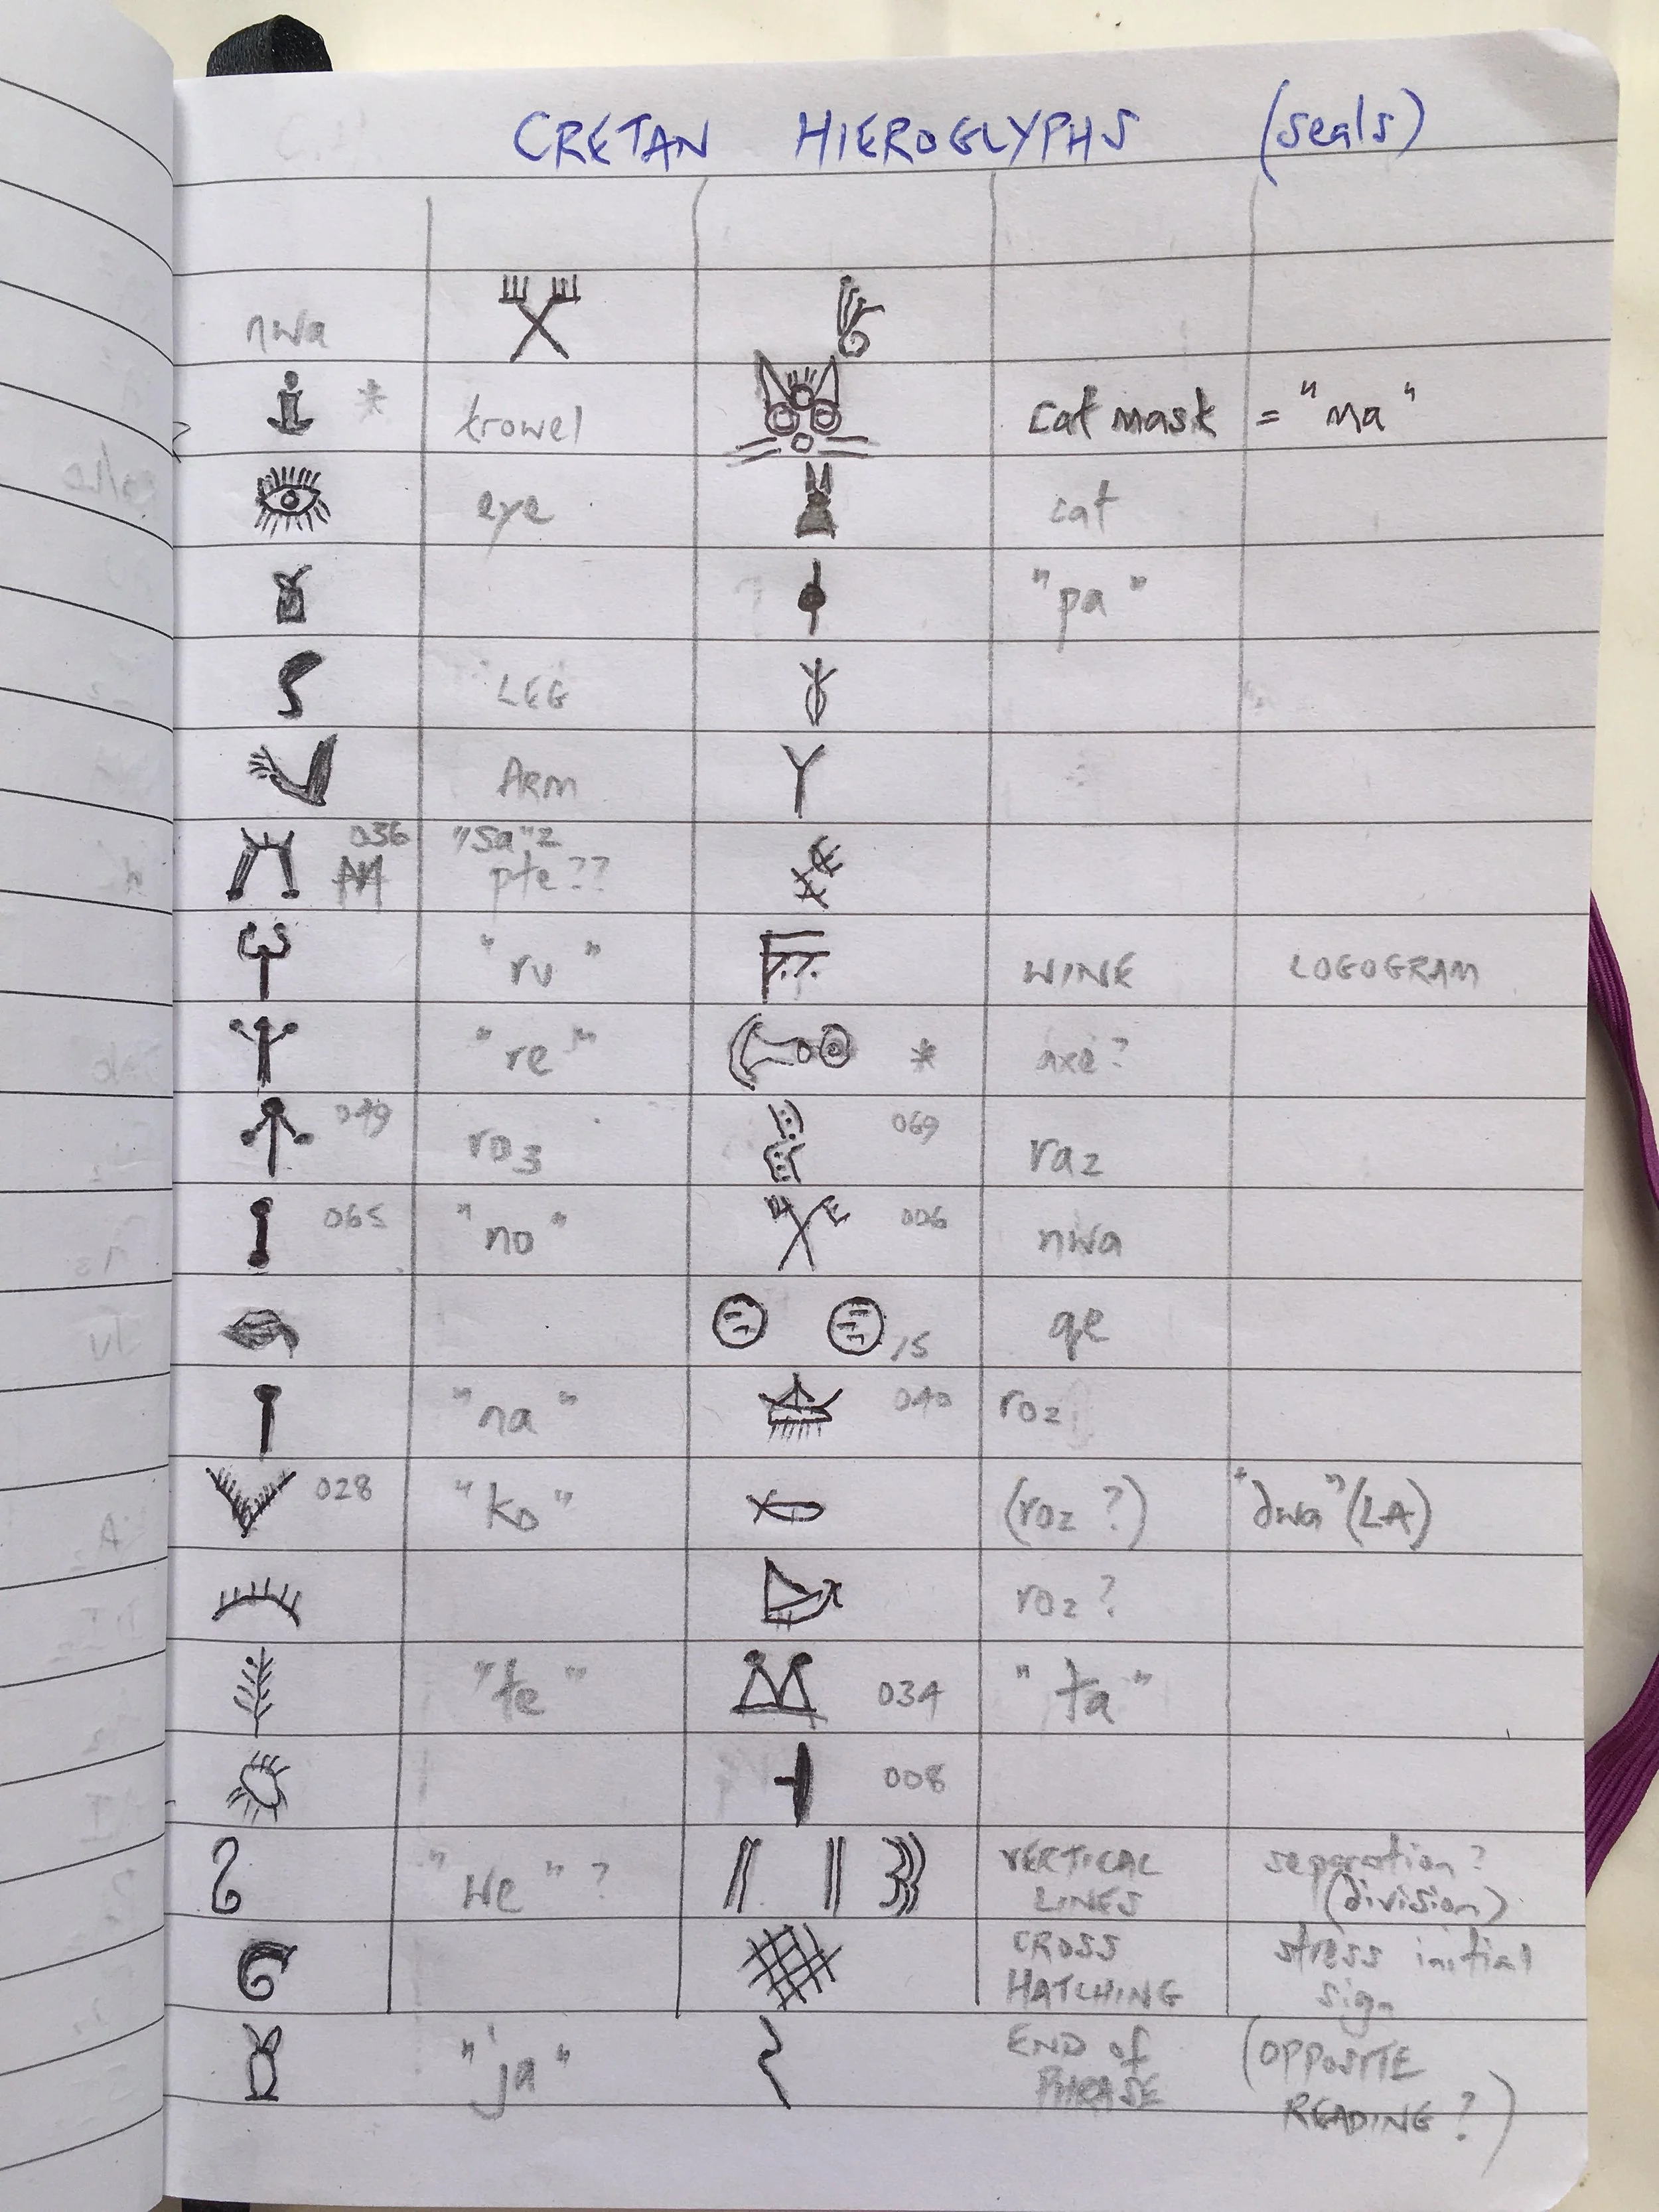 CRETAN HIEROGLYPHS (seals)
nwa
* trowel cat mask = "ma"
eye cat
"pa"
LEG
ARM
036 "sa"2
pte??
"ru" WINE LOGOGRAM
"re" * axe?
049 ro3 069 ra2
065 "no" 006 nwa
15 qe
"na" 040 ro2
028 "ko" (ro2 ?) "dwa" (LA)
ro2 ?
"te" 034 "ta"
008
"we" ? VERTICAL separation?
LINES (division)
CROSS stress initial
HATCHING sign
"ja" END of (OPPOSITE
PHRASE READING?)